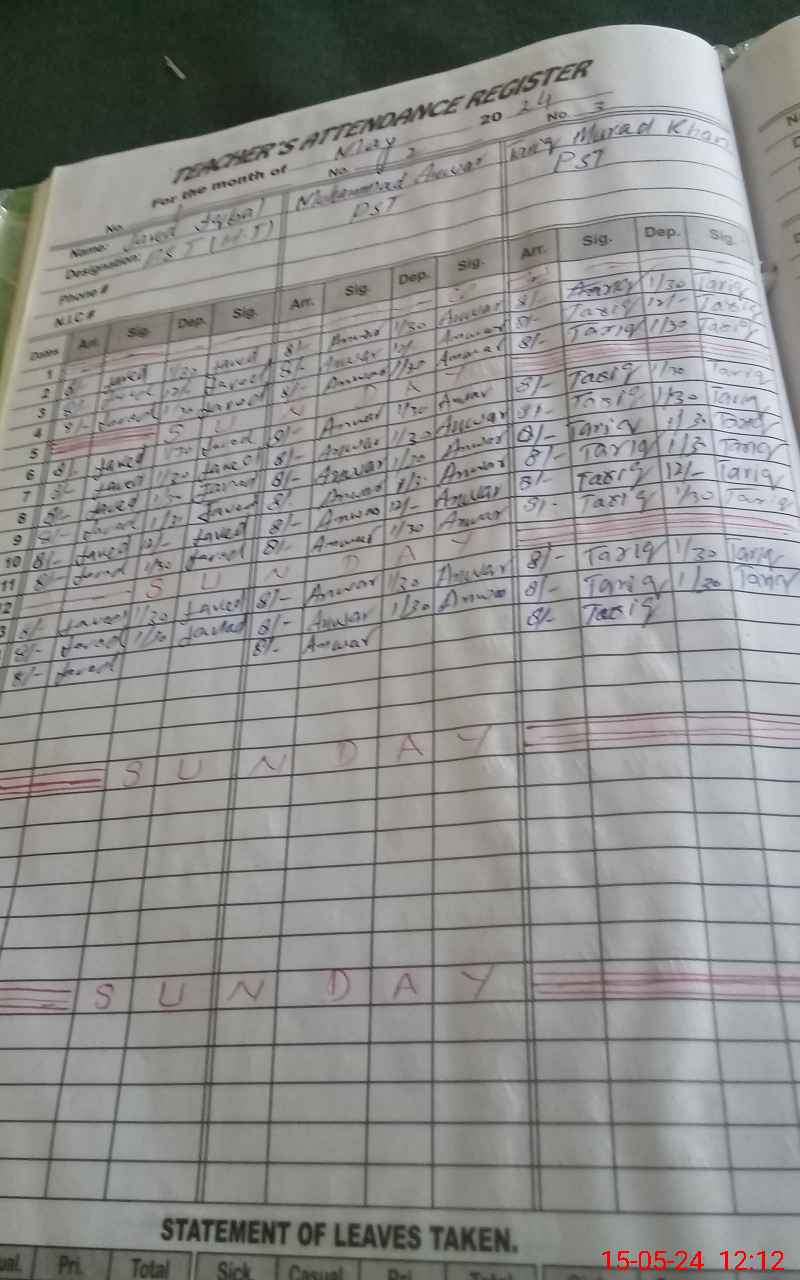 TEACHER'S ATTENDANCE REGISTER
For the month of May 2024
No. 1 No. 2 No. 3
Name: Javed Iqbal Mohammad Anwar Tariq Murad Khan
Designation: PST (H.T) PST PST
Phone #
N.I.C #
Dates Arr. Sig. Dep. Sig. Arr. Sig. Dep. Sig. Arr. Sig. Dep. Sig.
1
2 8/- Javed 1/30 Javed 8/- Anwar 1/30 Anwar 8/- Tariq 1/30 Tariq
3 8/- Javed 12/- Javed 8/- Anwar 12/- Anwar 8/- Tariq 12/- Tariq
4 8/- Javed 1/30 Javed 8/- Anwar 1/30 Anwar 8/- Tariq 1/30 Tariq
5 S U N D A Y
6 8/- Javed 1/30 Javed 8/- Anwar 1/30 Anwar 8/- Tariq 1/30 Tariq
7 8/- Javed 1/30 Javed 8/- Anwar 1/30 Anwar 8/- Tariq 1/30 Tariq
8 8/- Javed 1/30 Javed 8/- Anwar 1/30 Anwar 8/- Tariq 1/30 Tariq
9 8/- Javed 1/30 Javed 8/- Anwar 1/30 Anwar 8/- Tariq 1/30 Tariq
10 8/- Javed 12/- Javed 8/- Anwar 12/- Anwar 8/- Tariq 12/- Tariq
11 8/- Javed 1/30 Javed 8/- Anwar 1/30 Anwar 8/- Tariq 1/30 Tariq
12 S U N D A Y
8/- Javed 1/30 Javed 8/- Anwar 1/30 Anwar 8/- Tariq 1/30 Tariq
8/- Javed 1/30 Javed 8/- Anwar 1/30 Anwar 8/- Tariq 1/30 Tariq
8/- Javed 8/- Anwar 8/- Tariq
S U N D A Y
S U N D A Y
STATEMENT OF LEAVES TAKEN.
Pri. Total Sick Casual Pri. Total
15-05-24 12:12